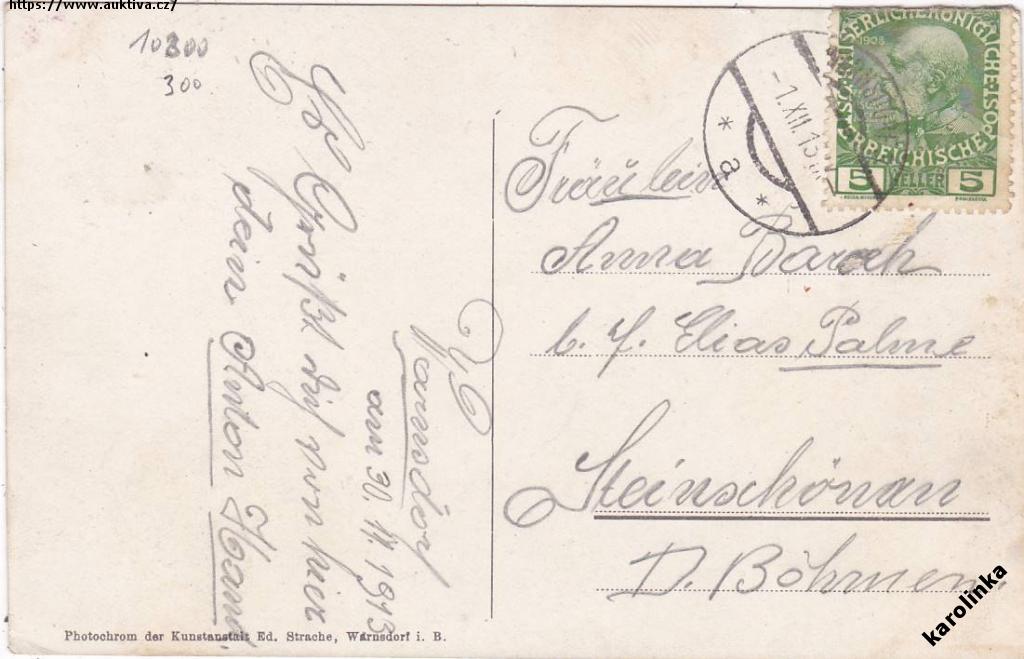 https://www.auktiva.cz/
10800
300
Warnsdorf
am 30. 11. 1913
Es Grüßt dich von hier
dein Anton
-1.XII.13
* a *
KAISERLICHE KÖNIGLICHE
1908
ÖSTERREICHISCHE POST
5 HELLER 5
Fräulein
Anna
b. f. Elias Palme
Steinschönau
D. Böhmen
Photochrom der Kunstanstalt Ed. Strache, Warnsdorf i. B.
karolinka